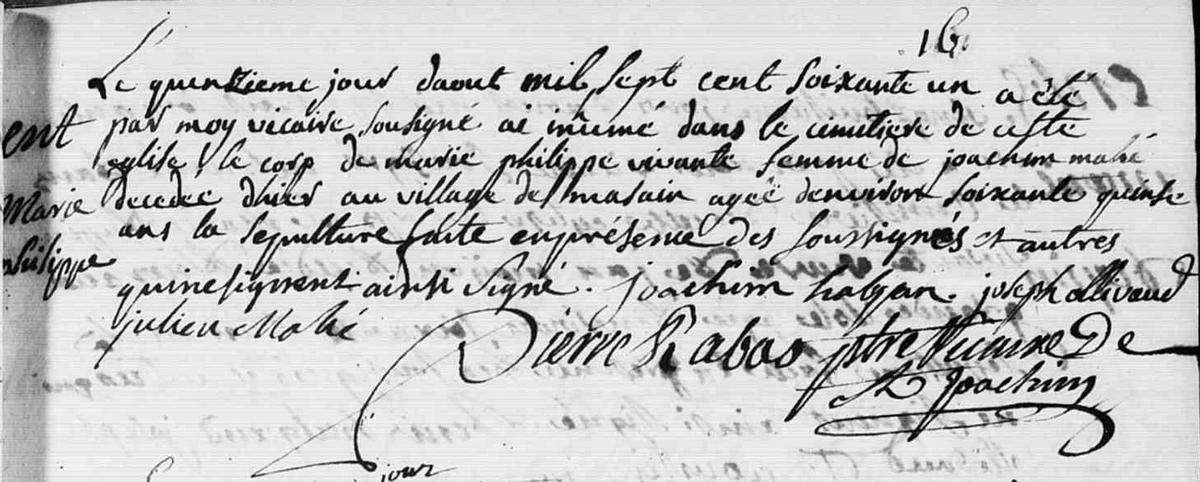 16
Le quinzieme jour daout mil sept cent soixante un a été
ent par moy vicaire sousigné ai inumé dans le cimitiere de cette
eglise le corp de marie philippe vivante femme de joachim mahé
Marie decedeé dhier au village de masain ageé denviron soixante quinse
ans la sepulture faite enprésense des soussignés et autres
philippe quinesignent ainsi signé. joachim halgan. joseph ollivaud
julien Mahé
Pierre Rabas ptre Vicaire De
St Joachim
jour